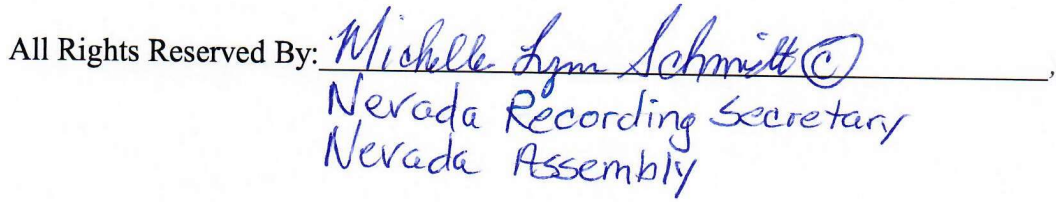 All Rights Reserved By: Michelle Lynn Schmidt ©,
Nevada Recording Secretary
Nevada Assembly